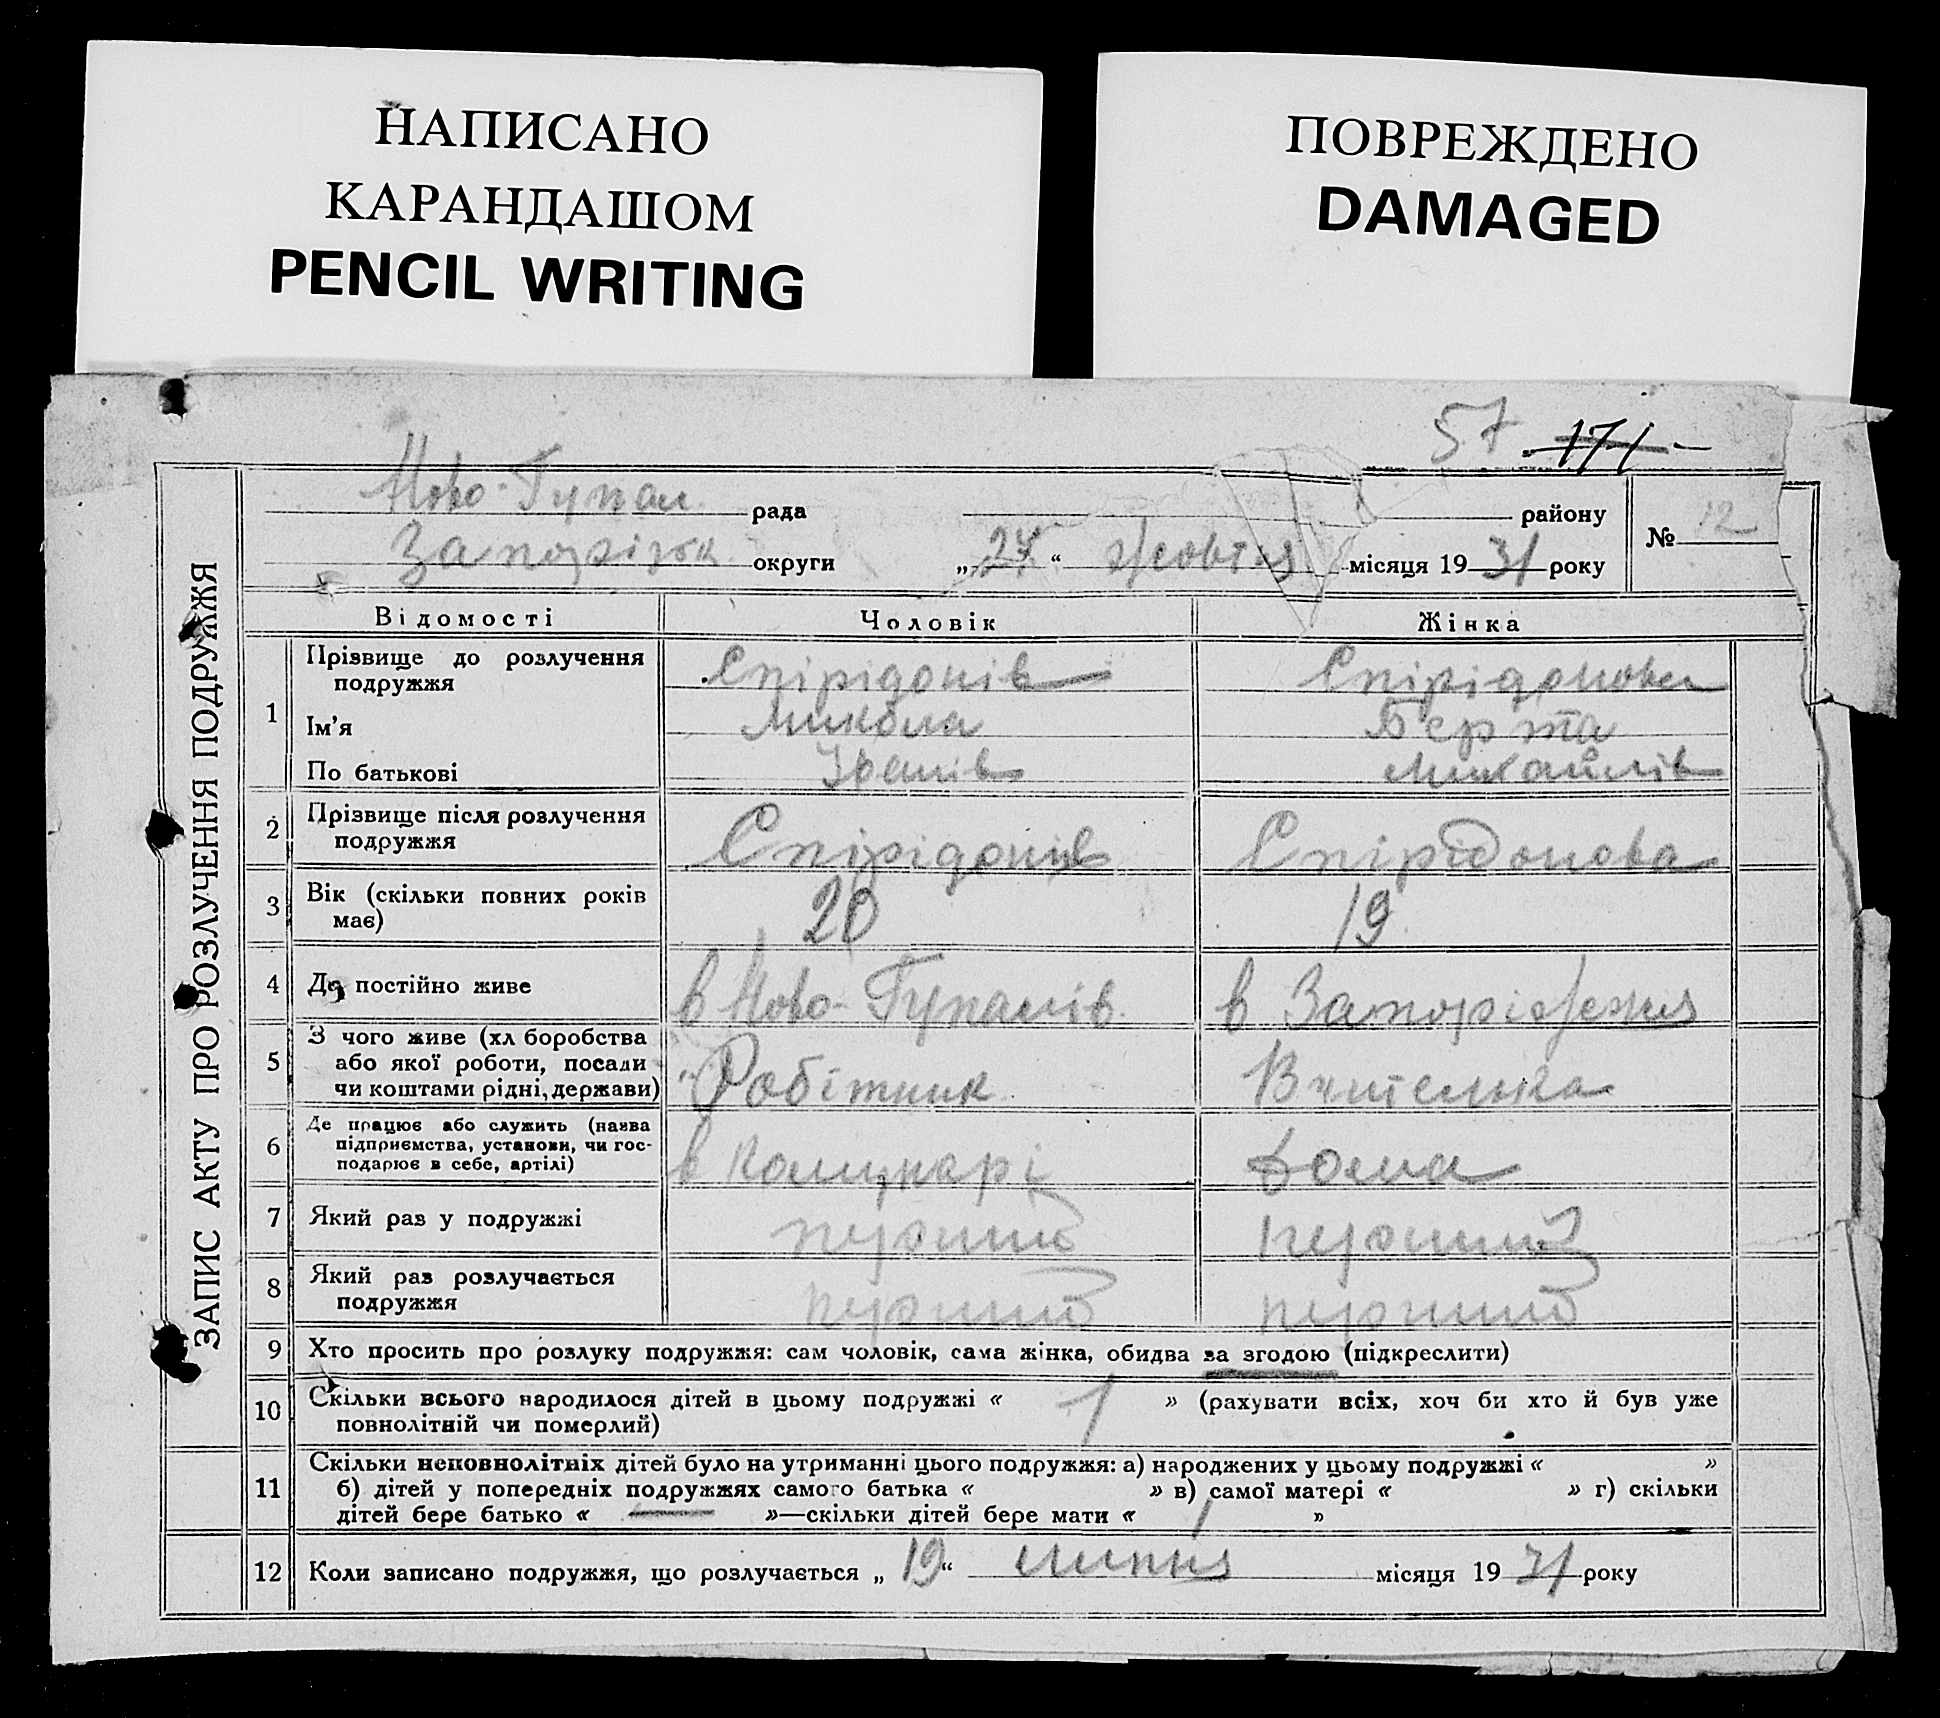 НАПИСАНО
КАРАНДАШОМ
PENCIL WRITING
ПОВРЕЖДЕНО
DAMAGED
57 171
ЗАПИС АКТУ ПРО РОЗЛУЧЕННЯ ПОДРУЖЖЯ
Ново-Гупал рада района району
Запорізьк округи „27“ жовтня місяця 1931 року
№ 12
Відомості Чоловік Жінка
1 Прізвище до розлучення подружжя Спірідонів Спірідонова
Ім'я Микола Берта
По батькові Іванів Михайлів
2 Прізвище після розлучення
подружжя Спірідонів Спірідонова
3 Вік (скільки повних років
має) 20 19
4 Де постійно живе в Ново-Гупалів в Запоріжжя
5 З чого живе (хліборобства
або якої роботи, посади
чи коштами рідні, держави) Робітник Вчителька
6 Де працює або служить (назва
підприємства, установи, чи гос-
подарює в себе, артілі) в Комунарі Дома
7 Який раз у подружжі перший перший
8 Який раз розлучається
подружжя перший перший
9 Хто просить про розлуку подружжя: сам чоловік, сама жінка, обидва за згодою (підкреслити)
10 Скільки всього народилося дітей в цьому подружжі « 1 » (рахувати всіх, хоч би хто й був уже
повнолітній чи померлий)
11 Скільки неповнолітніх дітей було на утриманні цього подружжя: а) народжених у цьому подружжі « »
б) дітей у попередніх подружжях самого батька « » в) самої матері « » г) скільки
дітей бере батько « — »—скільки дітей бере мати « 1 »
12 Коли записано подружжя, що розлучається „19“ липня місяця 1931 року